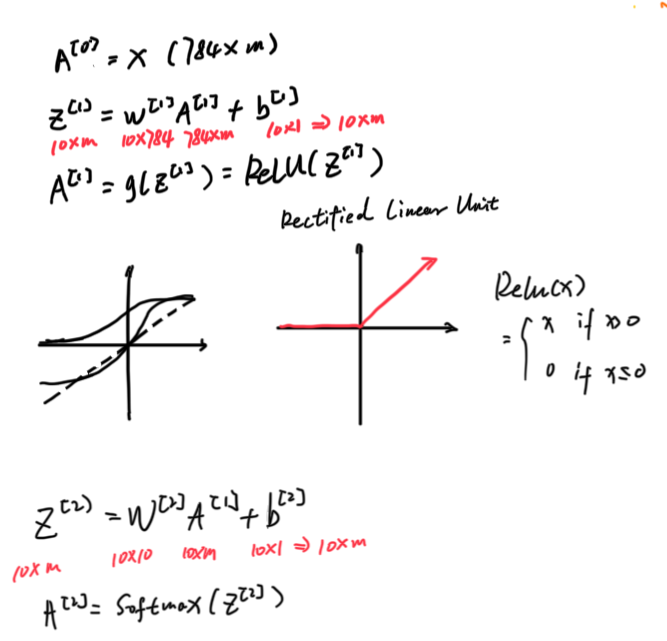 A^[0] = X (784×m)
Z^[1] = W^[1] A^[1] + b^[1]
10×m 10×784 784×m 10×1 ⇒ 10×m
A^[1] = g(Z^[1]) = ReLU(Z^[1])
Rectified Linear Unit
Relu(x)
= { x if x>0
0 if x≤0
Z^[2] = W^[2] A^[1] + b^[2]
10×m 10×10 10×m 10×1 ⇒ 10×m
A^[2] = Softmax(Z^[2])